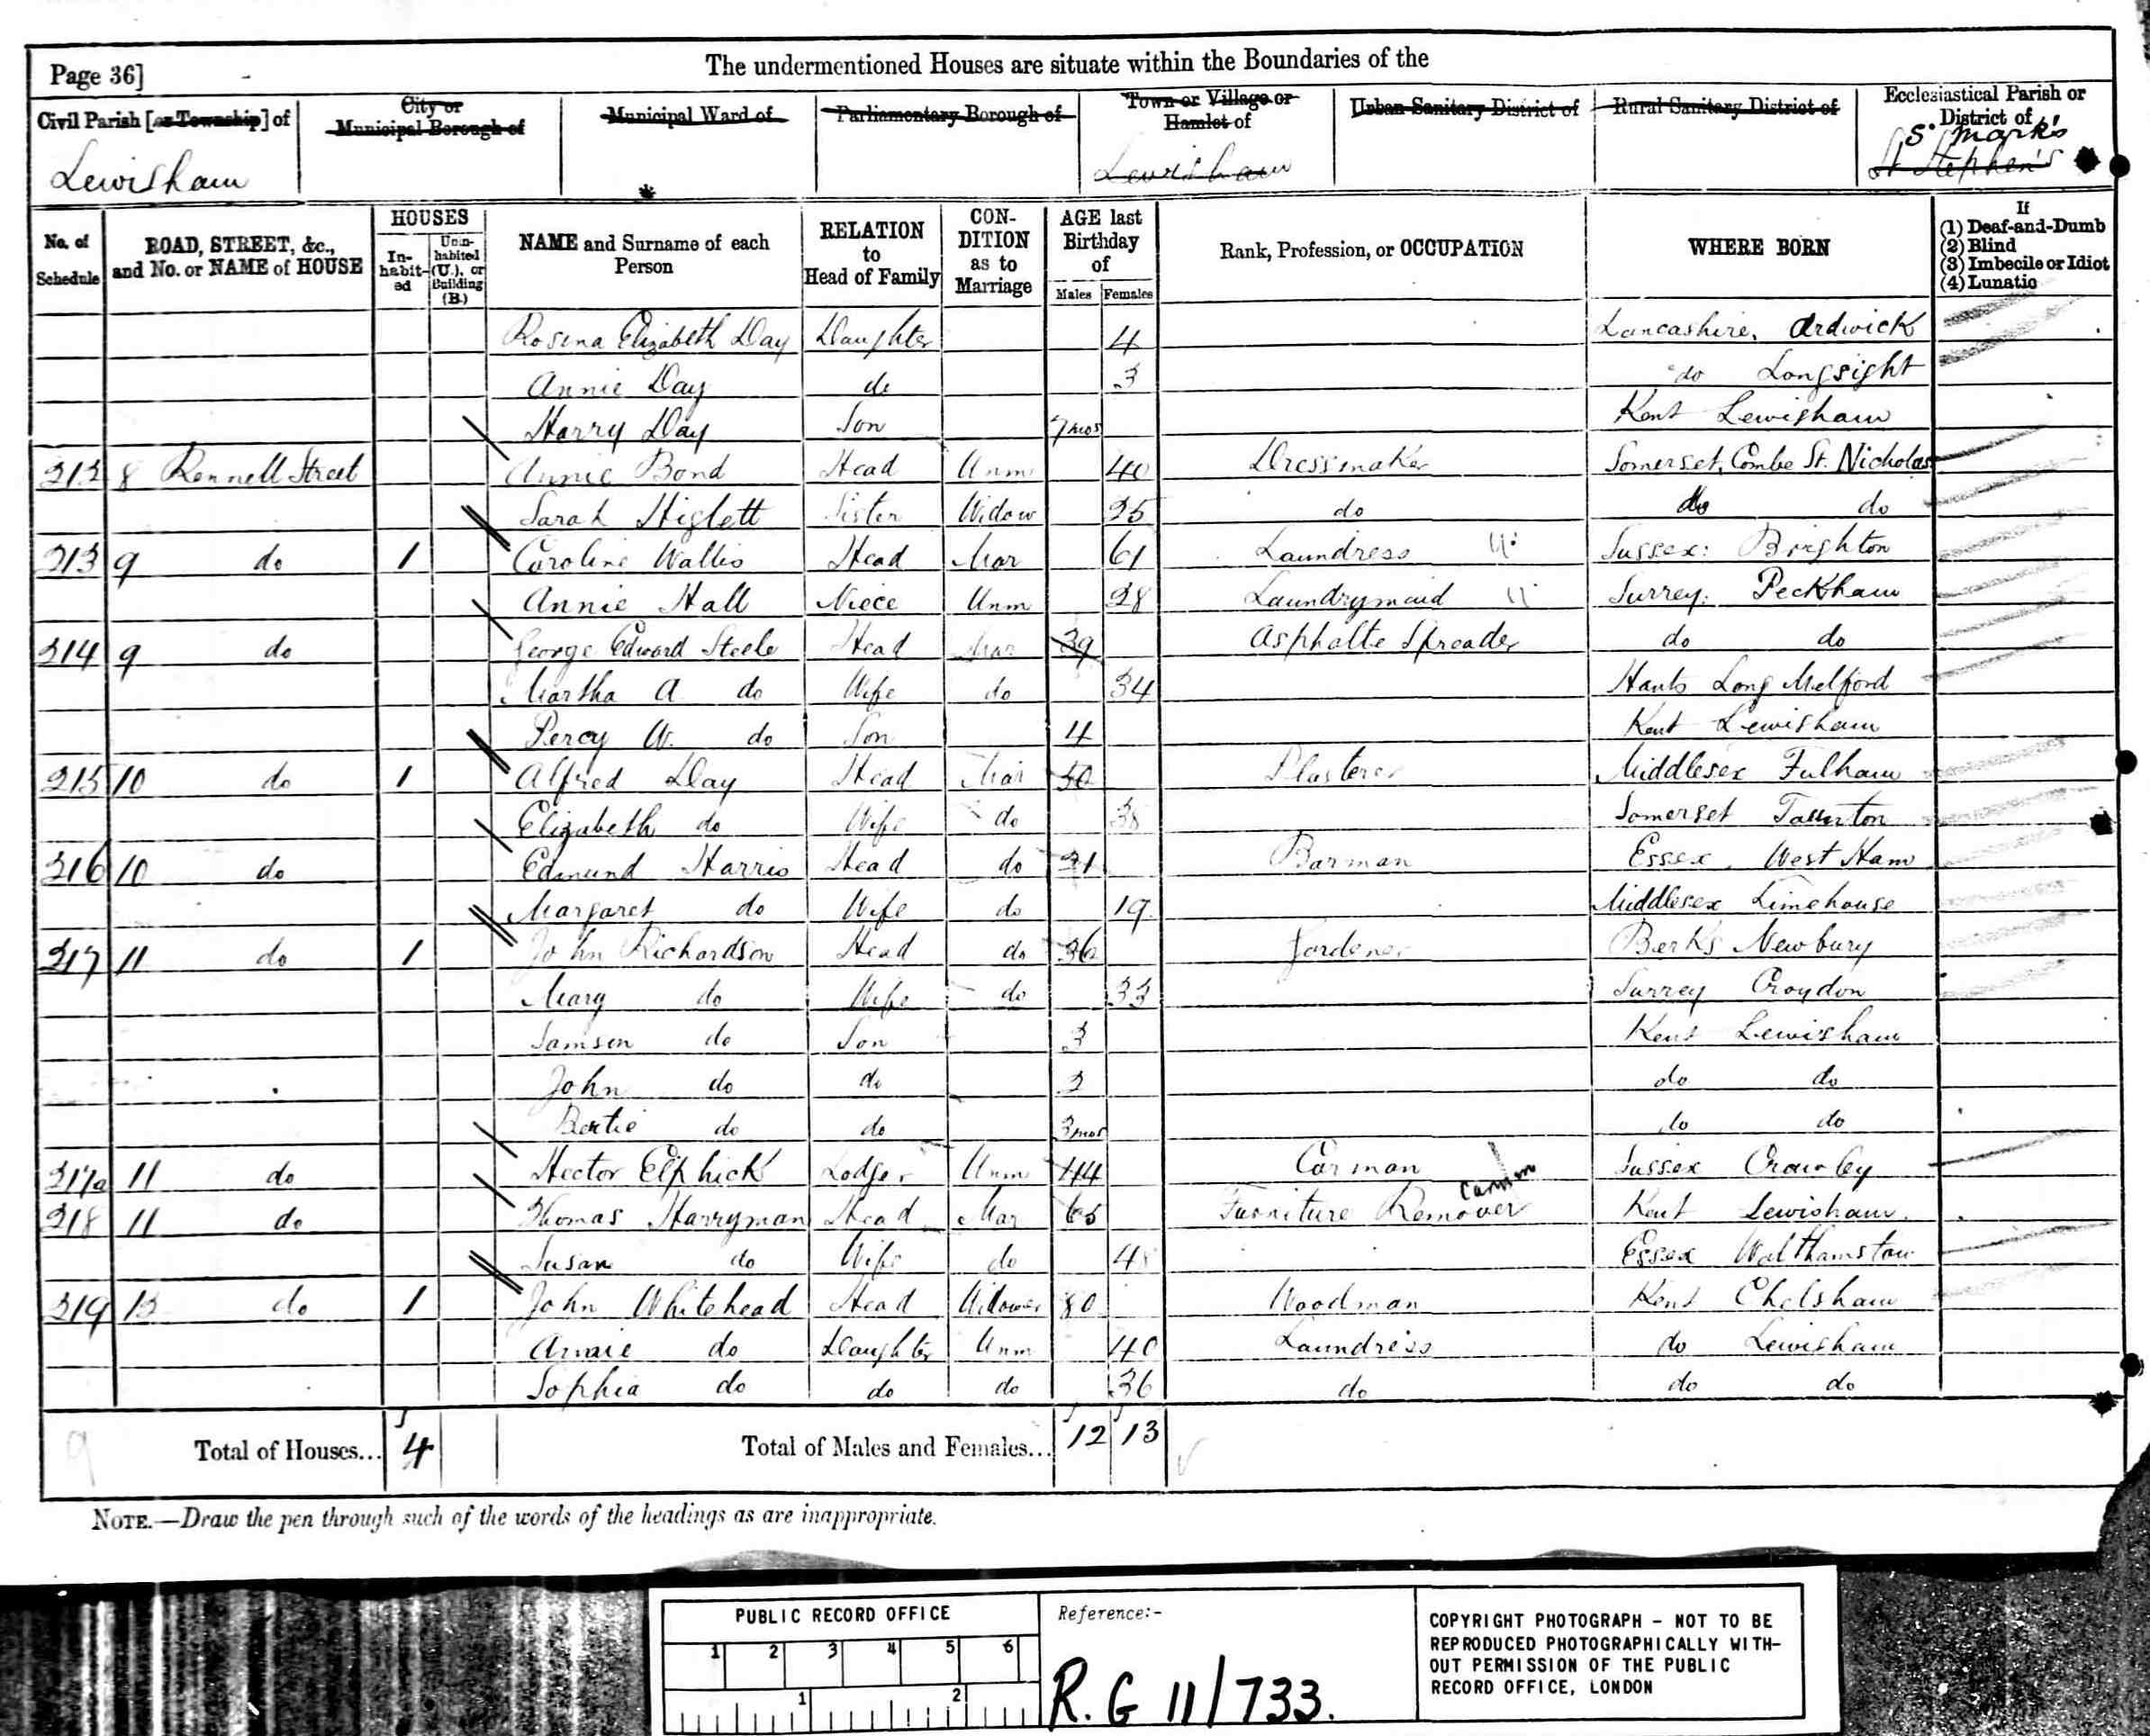 Page 36]
The undermentioned Houses are situate within the Boundaries of the
Civil Parish [or Township] of
City or Municipal Borough of
Municipal Ward of
Parliamentary Borough of
Town or Village or Hamlet of
Urban Sanitary District of
Rural Sanitary District of
Ecclesiastical Parish or District of
Lewisham
Lewisham
S. Mark's
St Stephen's
No. of Schedule
ROAD, STREET, &c., and No. or NAME of HOUSE
HOUSES
In-habit-ed
Unin-habited (U.), or Building (B.)
NAME and Surname of each Person
RELATION to Head of Family
CON-DITION as to Marriage
AGE last Birthday of
Males
Females
Rank, Profession, or OCCUPATION
WHERE BORN
If
(1) Deaf-and-Dumb
(2) Blind
(3) Imbecile or Idiot
(4) Lunatic
Rosina Elizabeth Day Daughter 4 Lancashire, Ardwick
Annie Day do 3 do Longsight
Harry Day Son 7 mos Kent Lewisham
212 8 Rennell Street Annie Bond Head Unm 40 Dressmaker Somerset, Combe St. Nicholas
Sarah Higlett Sister Widow 25 do do do
213 9 do 1 Caroline Wallis Head Mar 61 Laundress Sussex: Brighton
Annie Hall Niece Unm 28 Laundrymaid Surrey: Peckham
214 9 do George Edward Steele Head Mar 39 Asphalte Spreader do do
Martha A do Wife do 34 Hants Long Melford
Percy W. do Son 4 Kent Lewisham
215 10 do 1 Alfred Day Head Mar 30 Plasterer Middlesex Fulham
Elizabeth do Wife do 38 Somerset Taunton
216 10 do Edmund Harris Head do 21 Barman Essex West Ham
Margaret do Wife do 19 Middlesex Limehouse
217 11 do 1 John Richardson Head do 36 Gardener Berks Newbury
Mary do Wife do 33 Surrey Croydon
Samson do Son 3 Kent Lewisham
John do do 2 do do
Bertie do do 3 mos do do
217a 11 do Hector Elphick Lodger Unm 44 Carman Sussex Crawley
218 11 do Thomas Harryman Head Mar 65 Furniture Remover Carman Kent Lewisham
Susan do Wife do 48 Essex Walthamstow
219 13 do 1 John Whitehead Head Widower 80 Woodman Kent Chelsham
Annie do Daughter Unm 40 Laundress do Lewisham
Sophia do do do 36 do do do
9
Total of Houses... 4
Total of Males and Females... 12 13
NOTE.—Draw the pen through such of the words of the headings as are inappropriate.
PUBLIC RECORD OFFICE
1 2 3 4 5 6
1 2
Reference:-
R.G 11/733.
COPYRIGHT PHOTOGRAPH - NOT TO BE
REPRODUCED PHOTOGRAPHICALLY WITH-
OUT PERMISSION OF THE PUBLIC
RECORD OFFICE, LONDON